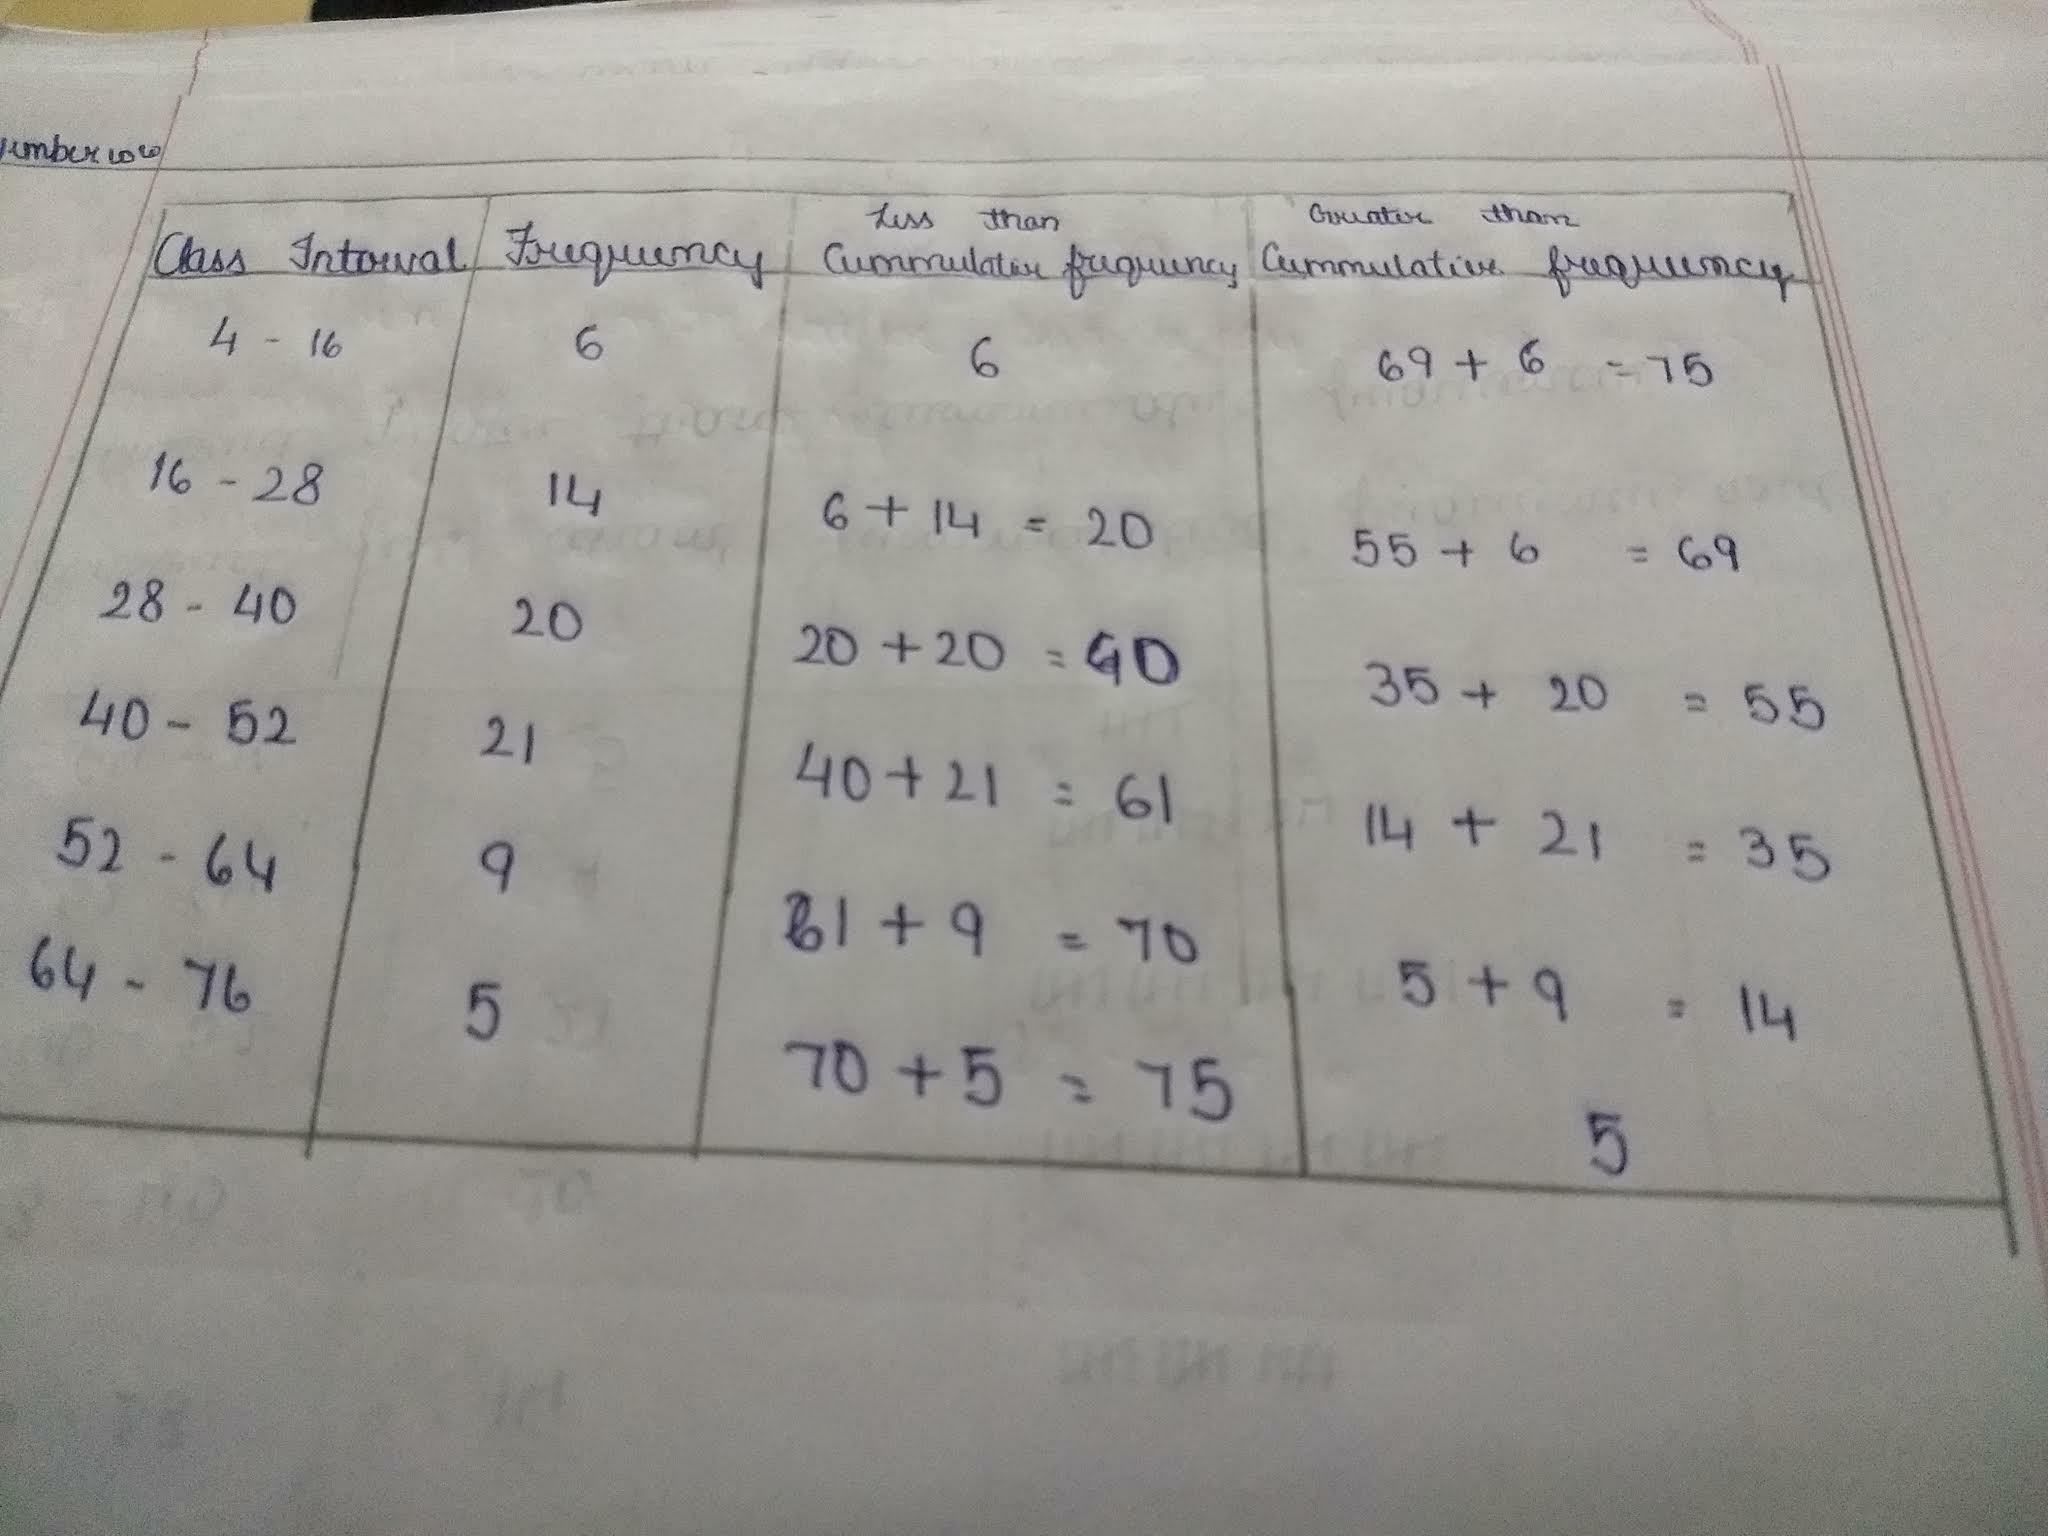 Class Interval Frequency Less than Cummulative frequency Greater than Cummulative frequency
4 - 16 6 6 69 + 6 = 75
16 - 28 14 6 + 14 = 20 55 + 6 = 69
28 - 40 20 20 + 20 = 40 35 + 20 = 55
40 - 52 21 40 + 21 = 61 14 + 21 = 35
52 - 64 9 61 + 9 = 70 5 + 9 = 14
64 - 76 5 70 + 5 = 75 5